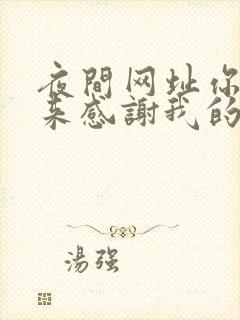 夜間网址你
来感謝我的
湯强